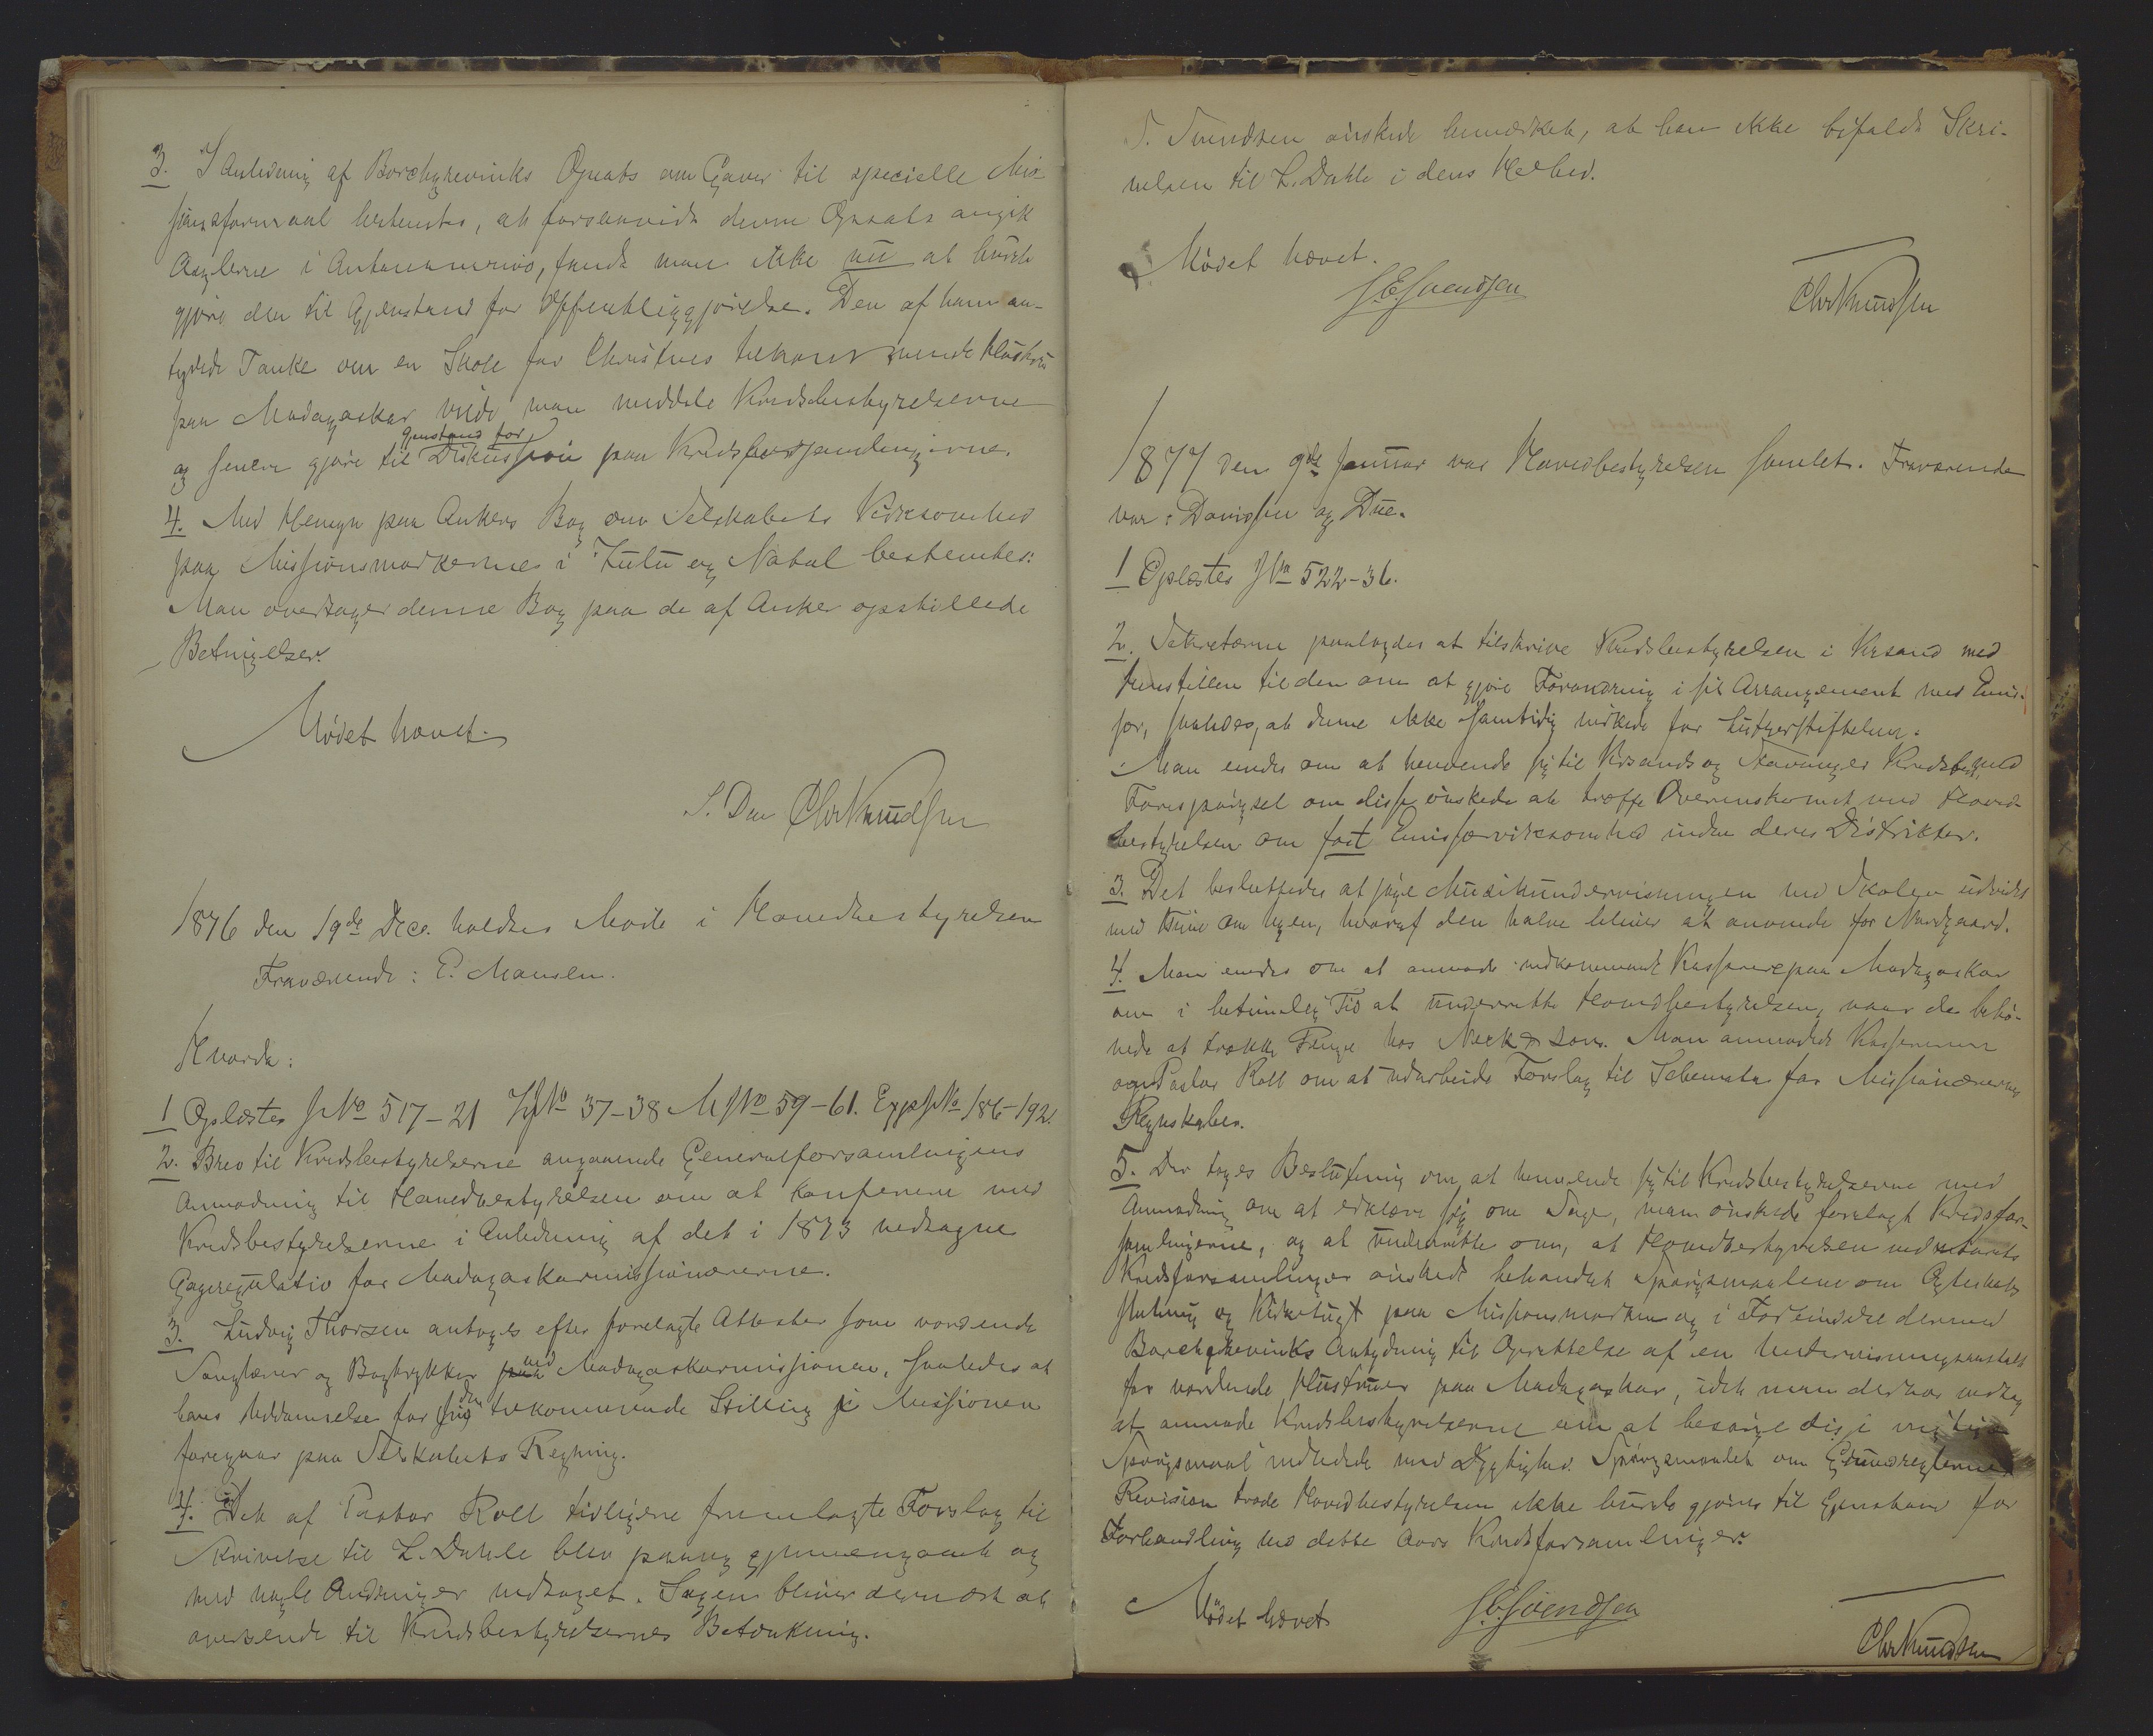 3. I Anledning af Borchgrevinks Opsats om Gaver til specielle Mis-
sjonsformaal bestemtes, at forsaavidt denne Opsats angik
Asylerne i Antananarivo, fandt man ikke nu at burde
gjøre den til Gjenstand for Offentliggjørelse. Den af ham an-
tydede Tanke om en Skole for Christnes tilkommende Hustruer
paa Madagaskar vilde man meddele Kredsbestyrelserne
og senere gjøre til Gjenstand for Diskussion paa Kredsforsamlingerne.
4. Med Hensyn paa Ankers Bog om Selskabets Virksomhed
paa Missionsmarkerne i Zulu og Natal bestemtes:
Man overtager denne Bog paa de af Anker opstillede
Betingelser.
Mødet hævet.
S. Due Chr Knudsen
1876 den 19de Dec. holdtes Møde i Hovedbestyrelsen
Fraværende:
Hvorda:
1 Oplæstes JNo 517-21 ZJNo 37-38 MJNo 59-61. ExpJNo 186-192.
2. Brev til Kredsbestyrelserne angaaende Generalforsamlingens
Anmodning til Hovedbestyrelsen om at konferere med
Kredsbestyrelserne i Anledning af det i 1873 vedtagne
Gageregulativ for Madagaskarmissionærerne.
3. Ludvig Thorsen antages efter forelagte Attester som vordende
Sanglærer og Bogtrykker ved Madagaskarmissionen, saaledes at
hans Uddannelse for den tilkommende Stilling i Missionen
foregaar paa Selskabets Regning.
4. Det af Pastor Roll tidligere fremlagte Forslag til
Skrivelse til L. Dahle blev paany gjennemgaaet og
med nogle Ændringer vedtaget. Sagen bliver dernæst at
oversende til Kredsbestyrelsernes Betænkning.
S. Svendsen ønskede bemærket, at han ikke bifaldt Skri-
velsen til L. Dahle i dens Helhed.
Mødet hævet.
S.E. Svendsen Chr Knudsen
1877 den 9de Januar var Hovedbestyrelsen samlet. Fraværende
var: Davidsen og Due.
1 Oplæstes JNo 522-36.
2. Sekretæren paalagdes at tilskrive Kredsbestyrelsen i Krsand med
Henstillen til den om at gjøre Forandring i sit Arrangement med Emis-
sær, saaledes, at denne ikke samtidig virkede for Lutherstiftelsen.
Man enedes om at henvende sig til Krsands og Stavanger Kredsbest. med
Forespørgsel om disse ønskede at træffe Overenskomst med Hoved-
bestyrelsen om fast Emissærvirksomhed inden deres Distrikter.
3. Det besluttedes at søge Musikundervisningen ved Skolen udvidet
med Time om Ugen, hvoraf den halve bliver at anvende for Nordgaard.
4. Man enedes om at anmode vedkommende Kasserere paa Madagaskar
om i betimelig Tid at underrette Hovedbestyrelsen, naar de behø-
vede at trække Penge hos Søn. Man anmodede Kassereren
og Pastor Roll om at udarbeide Forslag til Schemata for Missionærernes
Regnskaber.
5. Der toges Beslutning om at henvende sig til Kredsbestyrelserne med
Anmodning om at erklære sig om Sager, man ønskede forelagt Kredsfor-
samlingerne, og at underrette om, at Hovedbestyrelsen ved iaarets
Kredsforsamlinger ønskede behandlet Spørgsmaalene om Ægteskabs
slutning og Kirketugt paa Missionsmarken og i Forbindelse dermed
Borchgrevinks Antydning til Oprettelse af en Undervisningsanstalt
for vordende Hustruer paa Madagaskar, idet man derhos vedtog
at anmode Kredsbestyrelserne om at besørge disse vigtige
Spørgsmaal indledede med Dygtighed. Spørgsmaalet om Grundreglernes
Revision troede Hovedbestyrelsen ikke burde gjøres til Gjenstand for
Forhandling ved dette Aars Kredsforsamlinger.
Mødet hævet S.E. Svendsen
Chr Knudsen